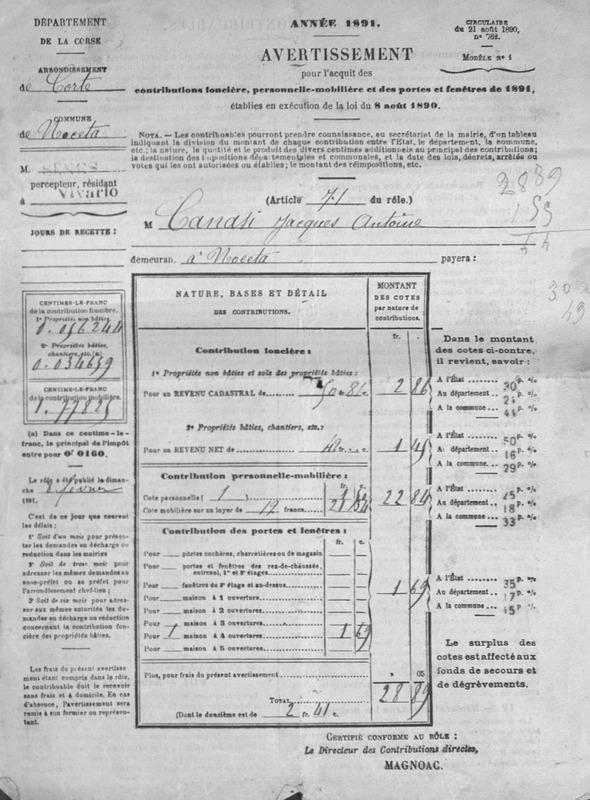 DÉPARTEMENT
DE LA CORSE
ARRONDISSEMENT
de Corte
COMMUNE
de Noceta
M.
percepteur, résidant
à VIVARIO
JOURS DE RECETTE :
ANNÉE 1891.
AVERTISSEMENT
pour l'acquit des
contributions foncière, personnelle-mobilière et des portes et fenêtres de 1891,
établies en exécution de la loi du 8 août 1890.
CIRCULAIRE
du 21 août 1890,
n° 761.
MODÈLE N° 1
NOTA. — Les contribuables pourront prendre connaissance, au secrétariat de la mairie, d'un tableau
indiquant la division du montant de chaque contribution entre l'État, le département, la commune,
etc.; la nature, la quotité et le produit des divers centimes additionnels au principal des contributions;
la destination des impositions départementales et communales, et la date des lois, décrets, arrêtés ou
votes qui les ont autorisées ou établies; le montant des réimpositions, etc.
2889
(Article 71 du rôle.)
M Canasi Jacques Antoine
demeuran à Noceta payera :
30
49
CENTIMES-LE-FRANC
de la contribution foncière.
1° Propriétés non bâties.
0.056244
2° Propriétés bâties,
chantiers, etc. (a)
0.034659
CENTIMES-LE-FRANC
de la contribution mobilière.
1.77825
(a) Dans ce centime-le-
franc, le principal de l'impôt
entre pour 0f 0160.
Le rôle a été publié le diman-
che 8 février
1891.
C'est de ce jour que courent
les délais :
1° Soit d'un mois pour présen-
ter les demandes en décharge ou
réduction dans les mairies
2° Soit de trois mois pour
adresser les mêmes demandes au
sous-préfet ou au préfet pour
l'arrondissement chef-lieu;
3° Soit de six mois pour adres-
ser aux mêmes autorités les deman-
des en décharge ou réduction
concernant la contribution fon-
cière des propriétés bâties.
Les frais du présent avertisse
ment étant compris dans le rôle,
le contribuable doit le recevoir
sans frais et à domicile. En cas
d'absence, l'avertissement sera
remis à son fermier ou représen-
tant.
NATURE, BASES ET DÉTAIL
DES CONTRIBUTIONS.
MONTANT
DES COTES
par nature de
contributions.
fr. c.
Contribution foncière :
1° Propriétés non bâties et sols des propriétés bâties :
Pour un REVENU CADASTRAL de 50.86 2 86
2° Propriétés bâties, chantiers, etc.:
Pour un REVENU NET de 1 45
Contribution personnelle-mobilière :
fr. c.
Cote personnelle ( 1 )
Cote mobilière sur un loyer de 12 francs. 21 34
22 84
Contribution des portes et fenêtres :
fr. c.
Pour portes cochères, charretières ou de magasin
Pour portes et fenêtres des rez-de-chaussée,
entresol, 1er et 2e étages
Pour fenêtres du 3e étage et au-dessus
Pour maison à 1 ouverture
Pour maison à 2 ouvertures
Pour maison à 3 ouvertures
Pour 1 maison à 4 ouvertures 1 69
Pour maison à 5 ouvertures
1 69
Plus, pour frais du présent avertissement » 05
TOTAL 28 89
(Dont le douzième est de 2 fr. 41 c.
Dans le montant
des cotes ci-contre,
il revient, savoir :
A l'État 30 p. %
Au département p. %
A la commune p. %
A l'État 50 p. %
Au département 16 p. %
A la commune 29 p. %
A l'État p. %
Au département 18 p. %
A la commune 33 p. %
A l'État 35 p. %
Au département 17 p. %
A la commune p. %
Le surplus des
cotes est affecté aux
fonds de secours et
de dégrèvements.
CERTIFIÉ CONFORME AU RÔLE :
Le Directeur des Contributions directes,
MAGNOAC.